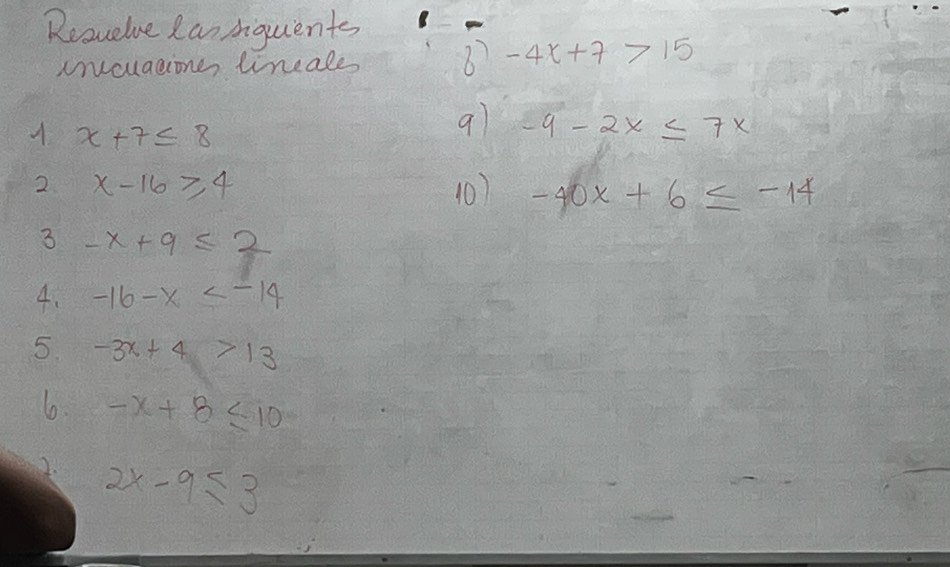 Resuelve las siguientes
inecuaciones lineales
1 x + 7 ≤ 8
2 x - 16 ≥ 4
3 -x + 9 ≤ 2
4. -16 - x < -14
5. -3x + 4 > 13
6. -x + 8 ≤ 10
7. 2x - 9 ≤ 3
8) -4x + 7 > 15
9) -9 - 2x ≤ 7x
10) -40x + 6 ≤ -14